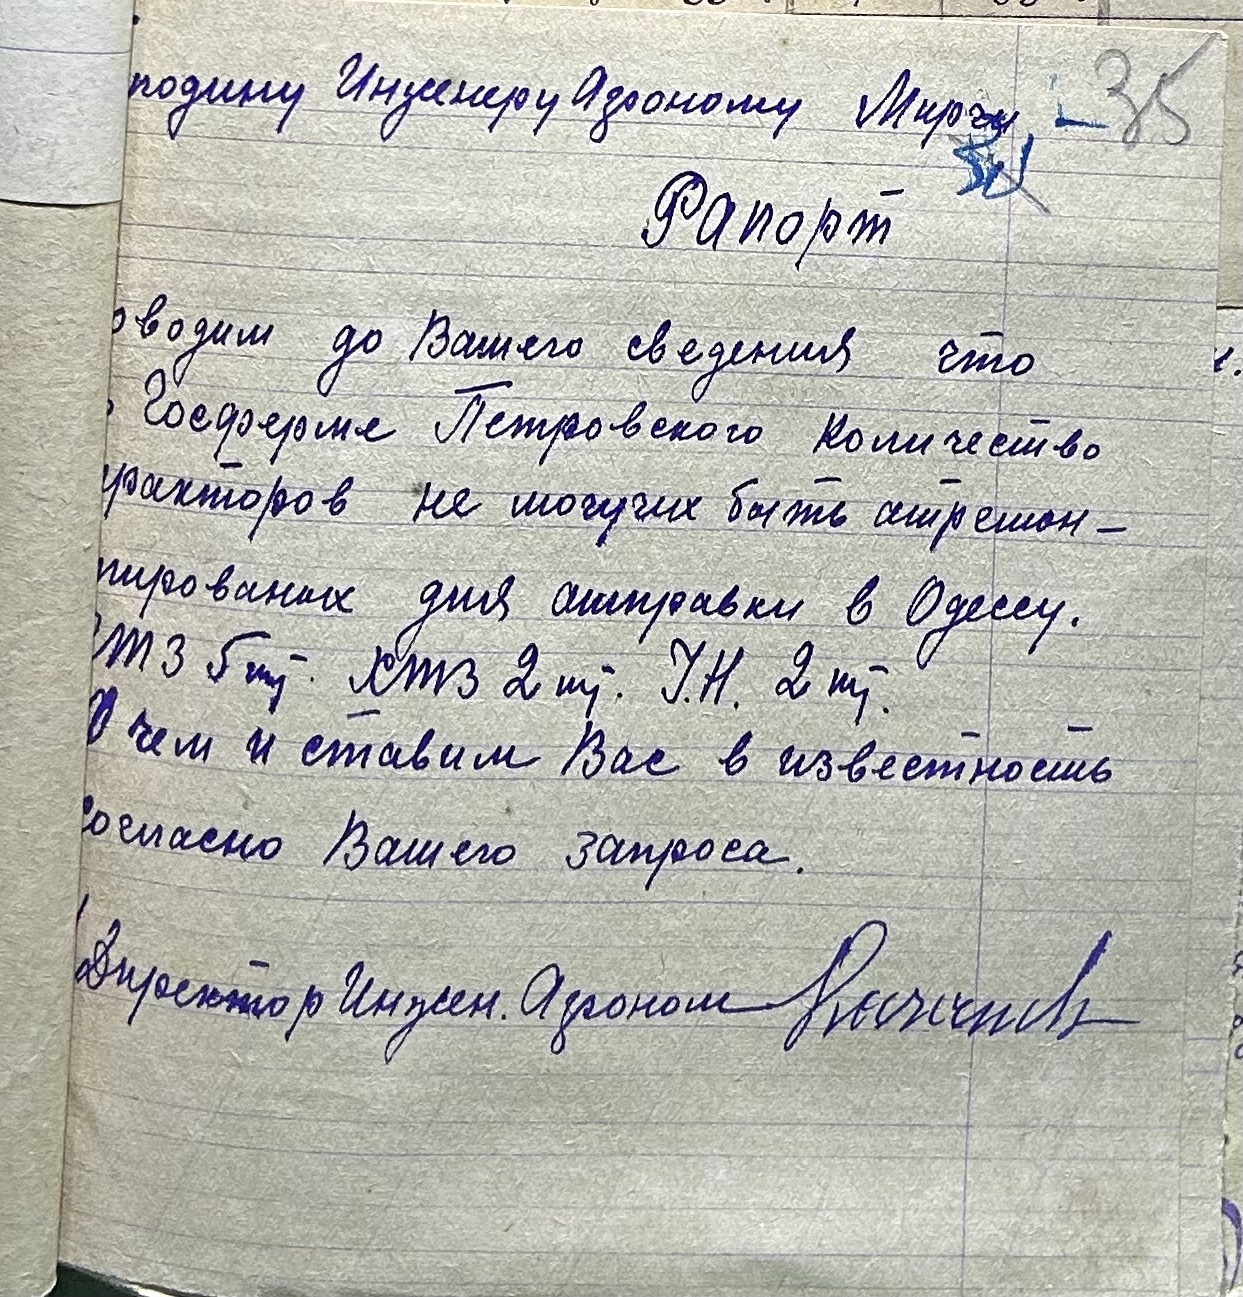 подину Инженеру Агроному Мирчу
35
Рапорт
оводим до Вашего сведения что
Госферме Петровского количество
тракторов не могучих быть атремон-
тированых для атправки в Одессу.
СТЗ 5 шт. ХТЗ 2 шт. У.Н. 2 шт.
О чем и ставим Вас в известность
согласно Вашего запроса.
Директор Инжен. Агроном